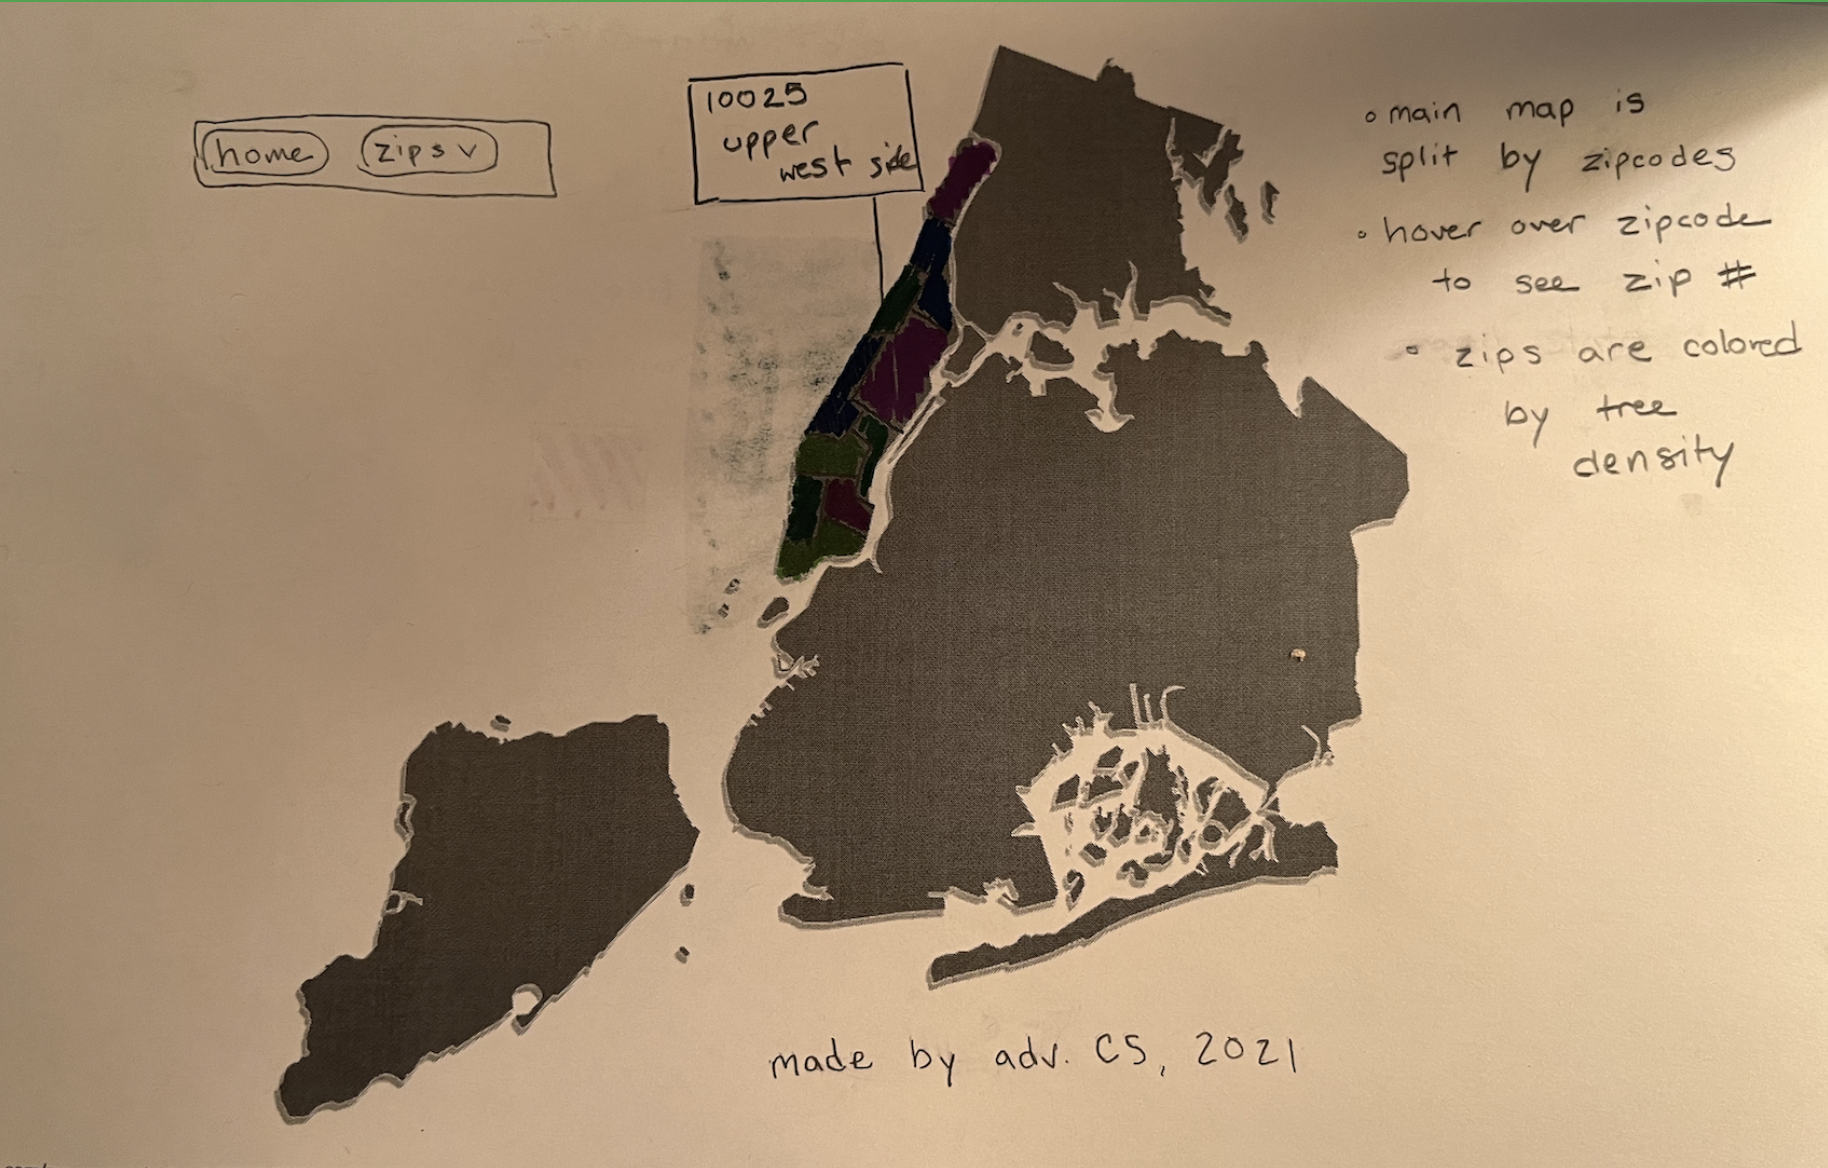 home
zips v
10025
upper
west side
• main map is
split by zipcodes
• hover over zipcode
to see zip #
• zips are colored
by tree
density
made by adv. CS, 2021